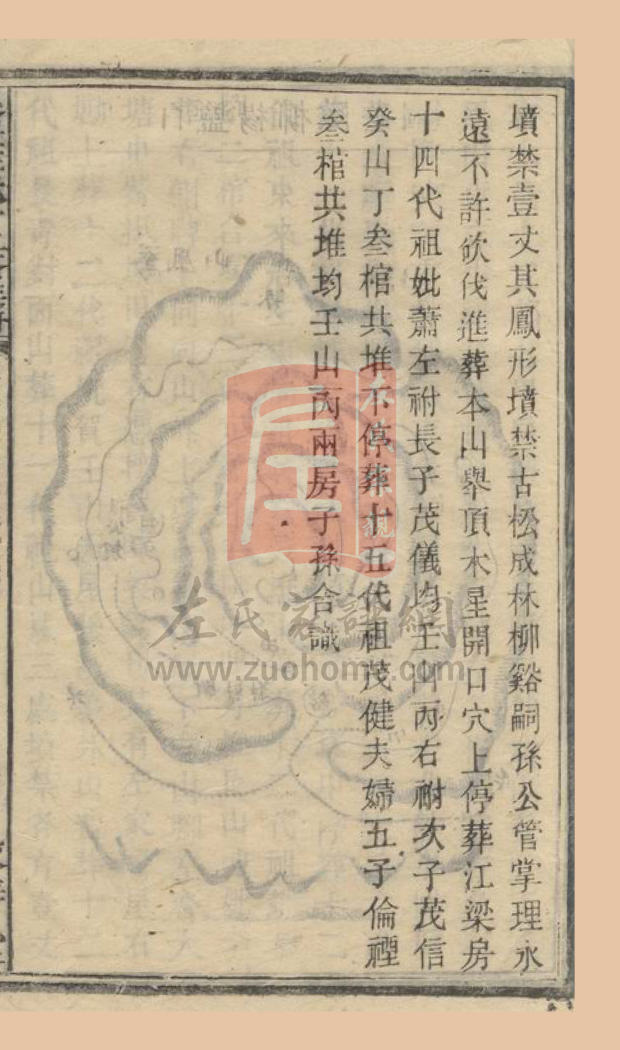 墳禁壹丈其鳳形墳禁古松成林柳谿嗣孫公管掌理永
遠不許欲伐進葬本山舉頂木星開口穴上停葬江梁房
十四代祖妣蕭左祔長子茂儀均壬山丙右祔次子茂信
癸山丁叁棺共堆下停葬十五代祖茂健夫婦五子倫禋
叁棺共堆均壬山丙兩房子孫合識
左氏家譜網
www.zuohome.com